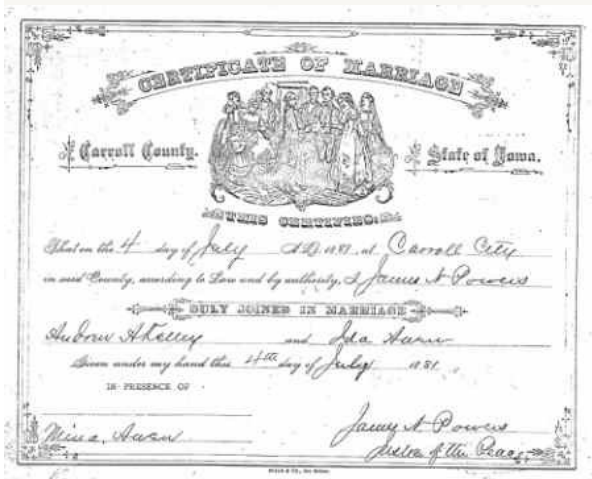 CERTIFICATE OF MARRIAGE
Carroll County. State of Iowa.
THIS CERTIFIES:
That on the 4 day of July A.D. 1881, at Carroll City
in said County, according to Law and by authority, I James N Powers
DULY JOINED IN MARRIAGE
Andrew and Ida
Given under my hand this 4th day of July 1881
IN PRESENCE OF
James N Powers
of the Peace